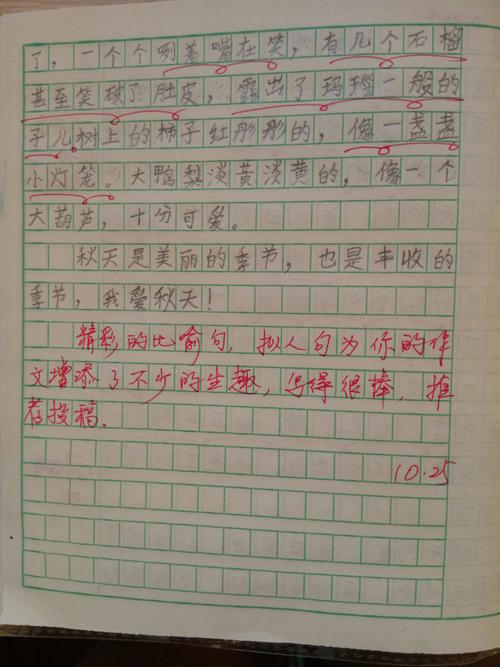 了，一个个咧着嘴在笑，有几个石榴
甚至笑破了肚皮，露出了玛瑙一般的
子儿。树上的柿子红彤彤的，像一盏盏
小灯笼。大鸭梨淡黄淡黄的，像一个
大葫芦，十分可爱。
秋天是美丽的季节，也是丰收的
季节，我爱秋天！
精彩的比喻句，拟人句为你的作
文增添了不少的生趣，写得很棒，推
荐投稿。
10.25